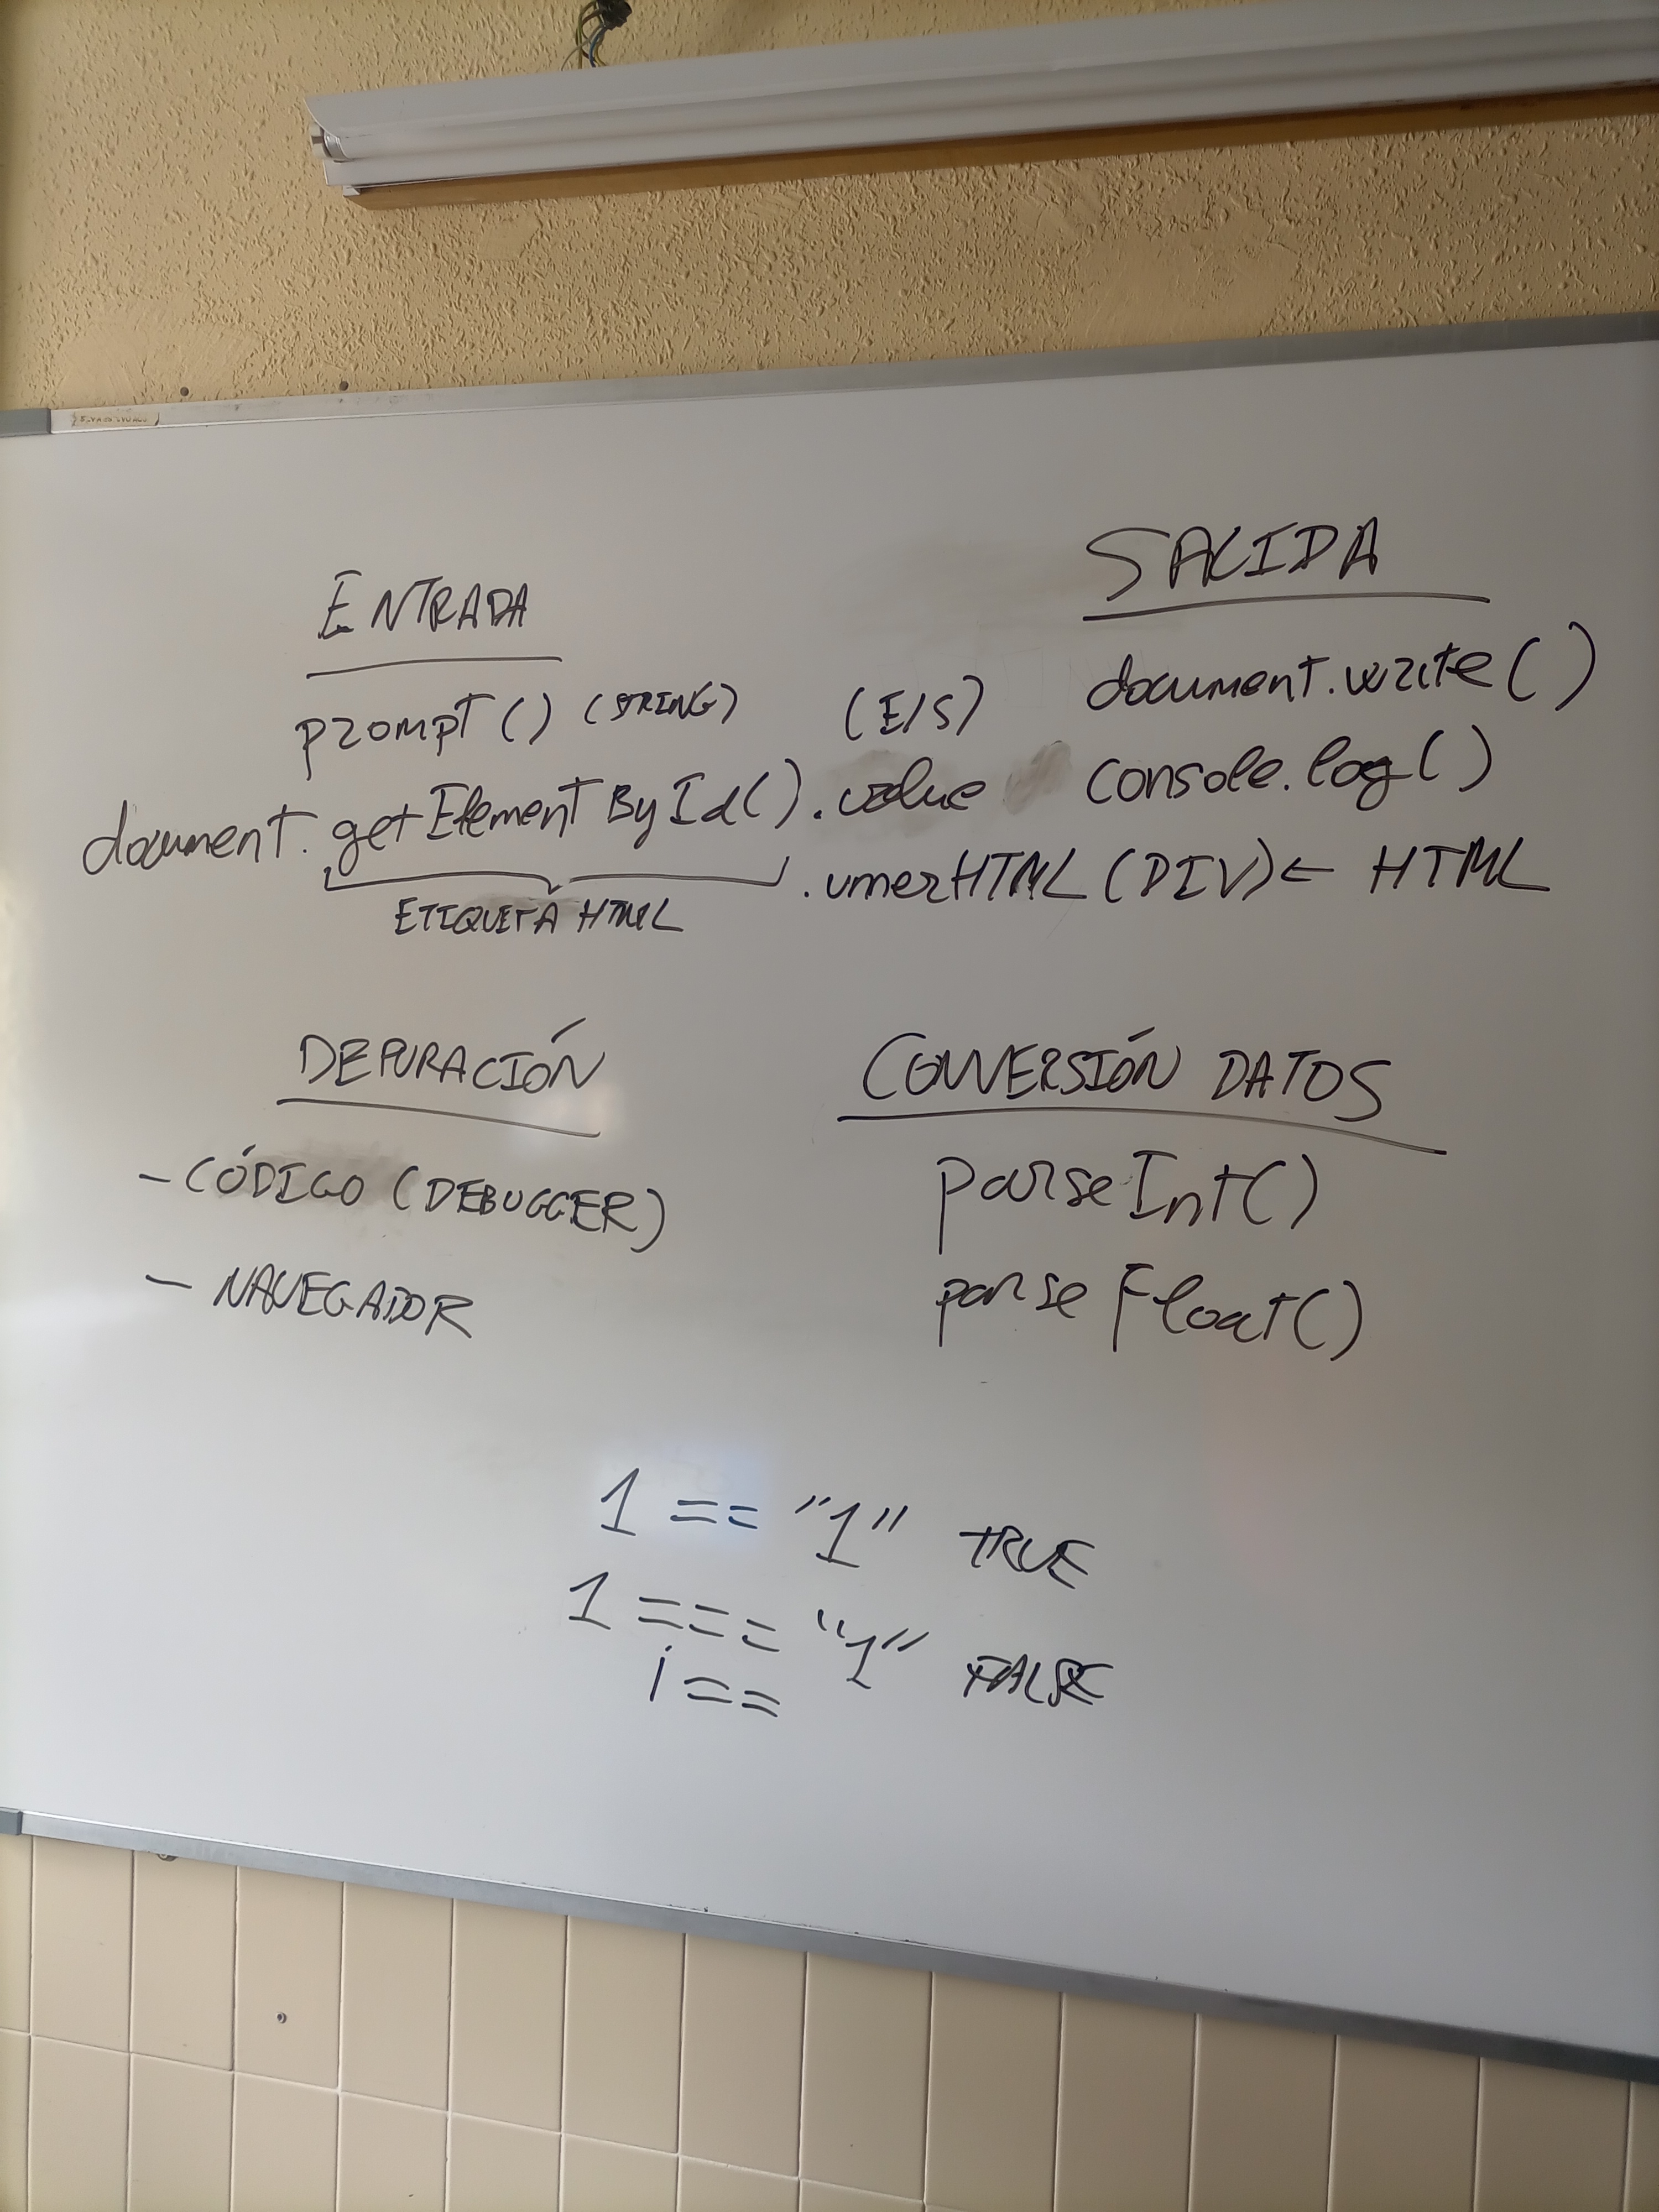 ENTRADA
prompt() (STRING)
(E/S)
document.getElementById().value
ETIQUETA HTML
.innerHTML (DIV) ← HTML
SALIDA
document.write()
console.log()
DEPURACIÓN
- CÓDIGO (DEBUGGER)
- NAVEGADOR
CONVERSIÓN DATOS
parseInt()
parseFloat()
1 == "1" TRUE
1 === "1" FALSE
¡ ==